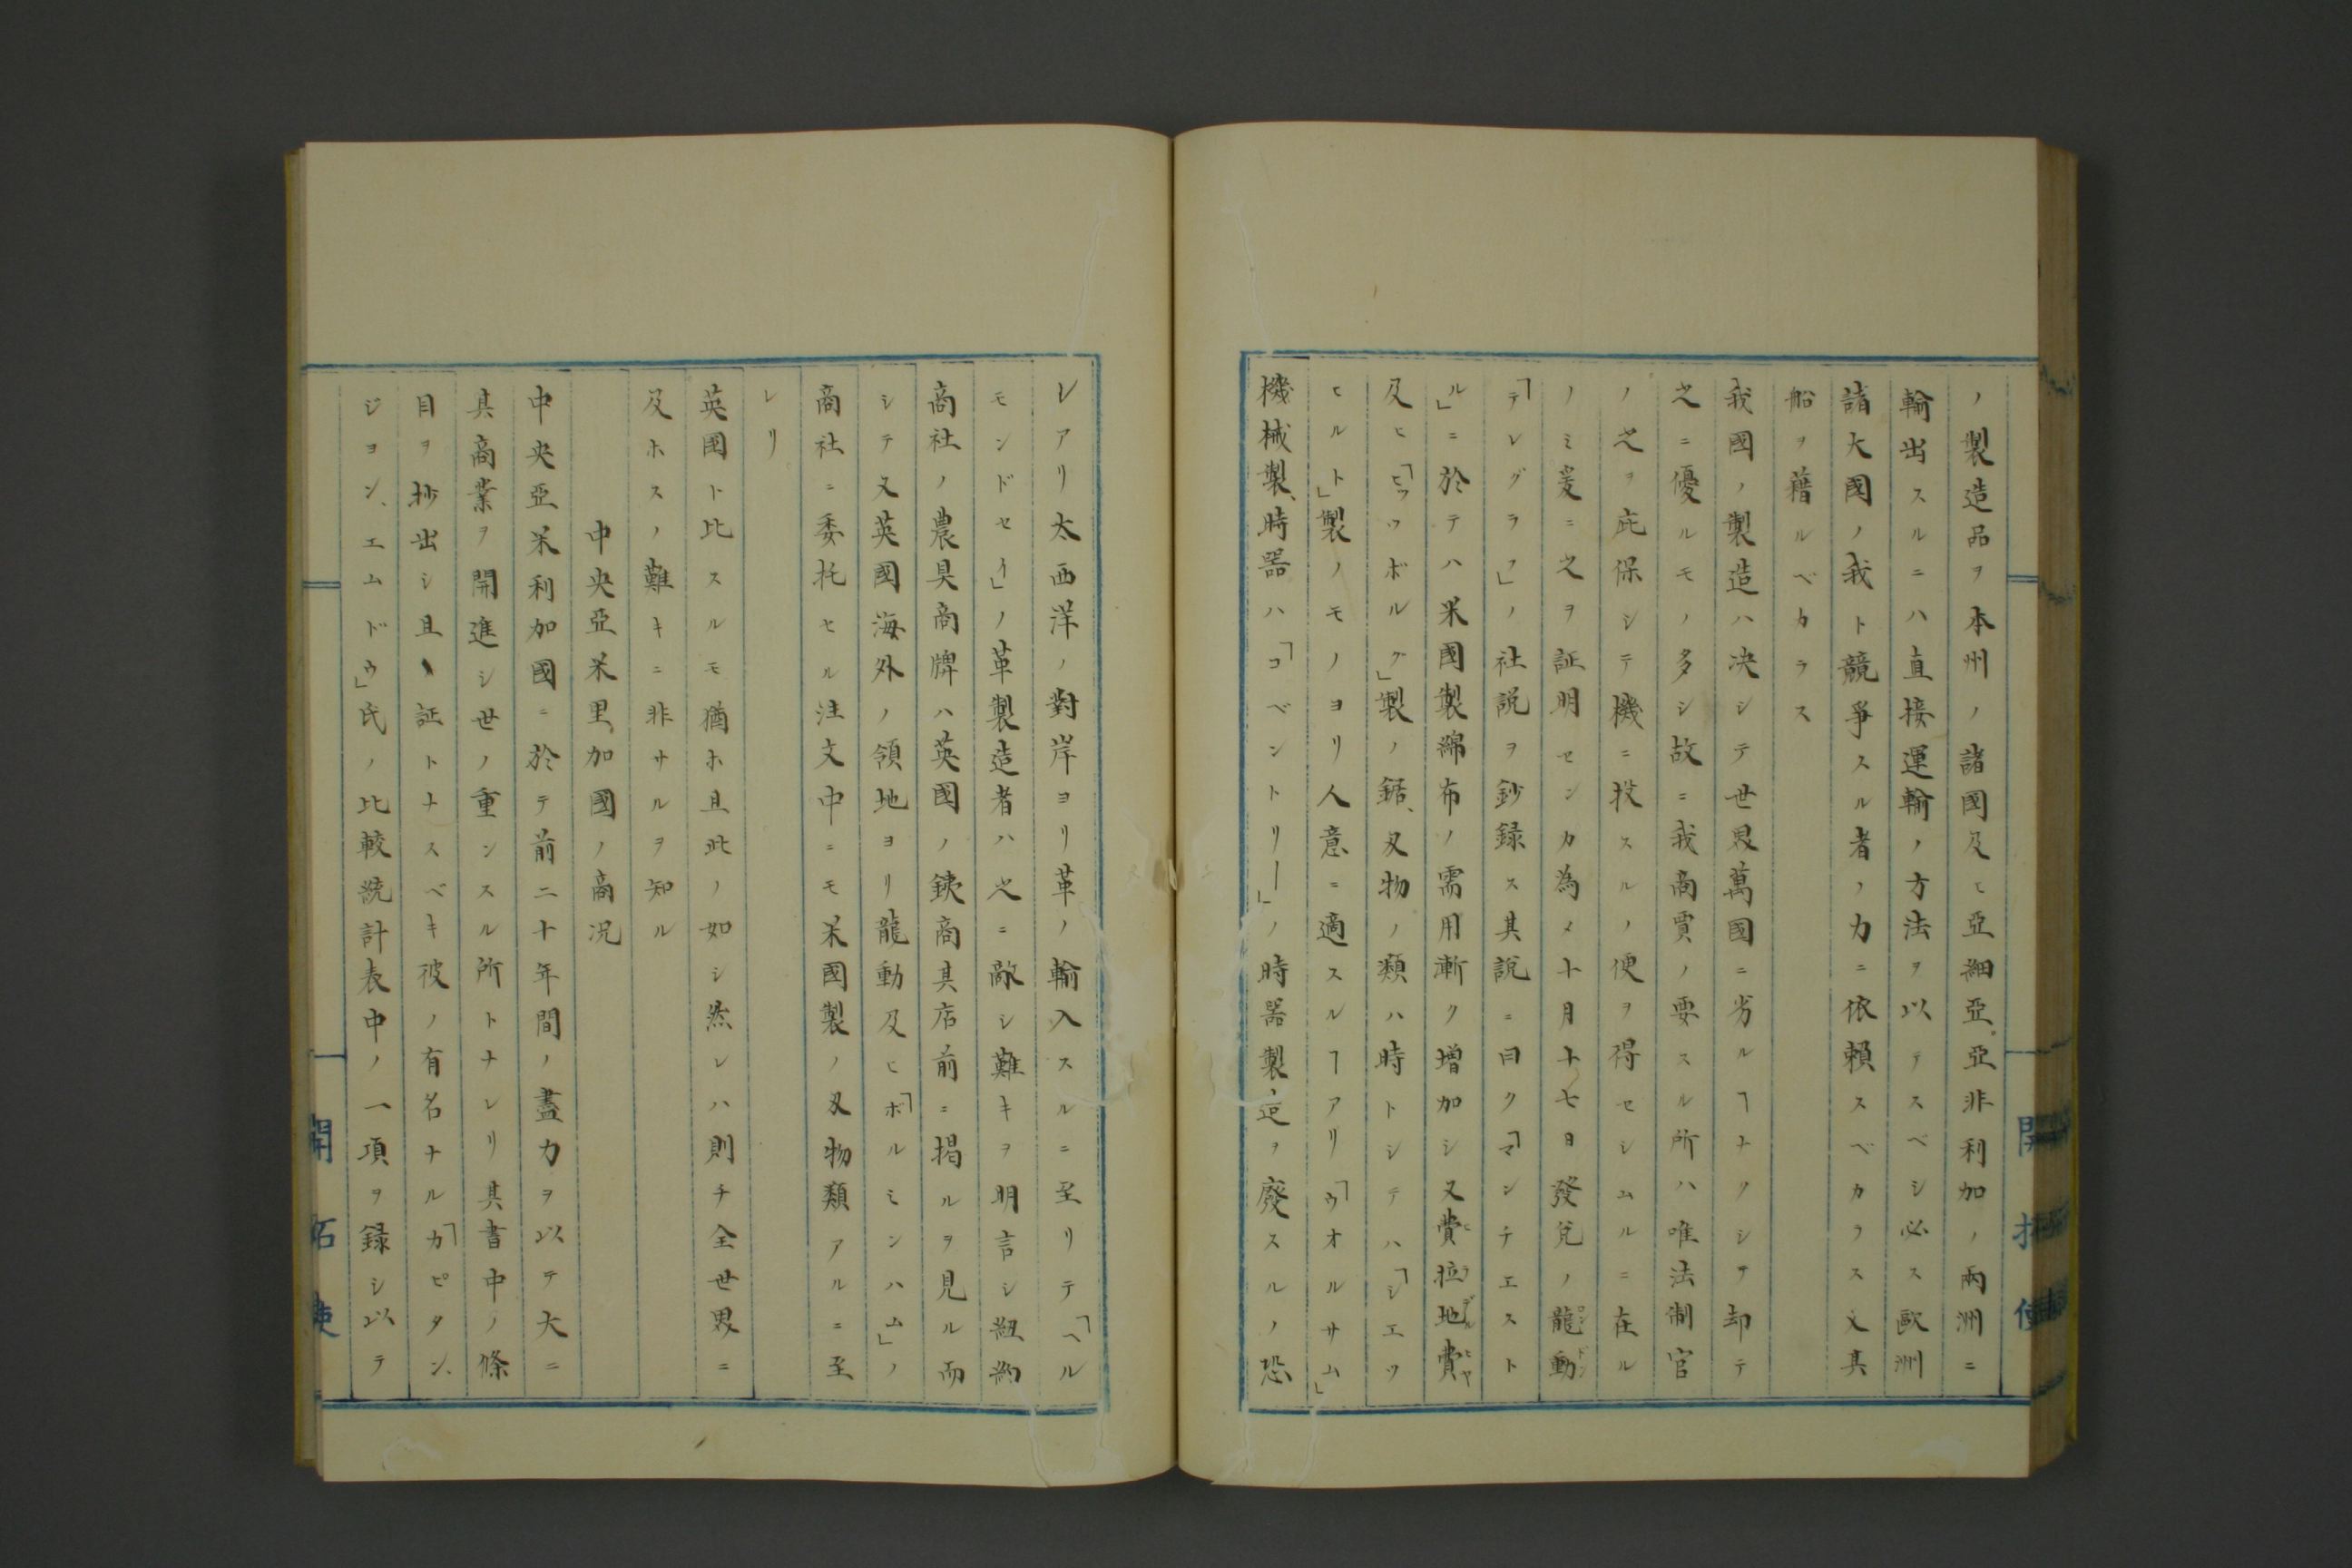 ノ製造品ヲ本州ノ諸國及ヒ亞細亞亞非利加ノ兩洲ニ
輸出スルニハ直接運輸ノ方法ヲ以テスベシ必ス歐洲
諸大國ノ我ト競爭スル者ノ力ニ依頼スベカラス又其
船ヲ藉ルベカラス
我國ノ製造ハ决シテ世界萬國ニ劣ルヿナクシテ却テ
之ニ優ルモノ多シ故ニ我商賈ノ要スル所ハ唯法制官
ノ之ヲ庇保シテ機ニ投スルノ便ヲ得セシムルニ在ル
ノミ爰ニ之ヲ証明センカ為メ十月十七日發兌ノ龍動
「テレグラフ」ノ社説ヲ鈔録ス其説ニ曰ク「マンチエスト
ル」ニ於テハ米國製綿布ノ需用漸ク増加シ又費拉地費
及ヒ「ヒツツボルグ」製ノ鋸、刄物ノ類ハ時トシテハ「シエツ
ヒルト」製ノモノヨリ人意ニ適スルヿアリ「ウオルサム」
機械製、時器ハ「コベントリー」ノ時器製造ヲ廢スルノ恐
レアリ太西洋ノ對岸ヨリ革ノ輸入スルニ至リテ「ヘル
モンドセイ」ノ革製造者ハ之ニ敵シ難キヲ明言シ紐約
商社ノ農具商牌ハ英國ノ鉄商其店前ニ掲ルヲ見ル而
シテ又英國海外ノ領地ヨリ龍動及ヒ「ボルミンハム」ノ
商社ニ委托セル注文中ニモ米國製ノ刄物類アルニ至
レリ
英國ト比スルモ猶ホ且此ノ如シ然レハ則チ全世界ニ
及ホスノ難キニ非サルヲ知ル
中央亞米里加國ノ商况
中央亞米利加國ニ於テ前二十年間ノ盡力ヲ以テ大ニ
其商業ヲ開進シ世ノ重ンスル所トナレリ其書中ノ條
目ヲ抄出シ且ヽ証トナスベキ彼ノ有名ナル「カピタン、
ジヨン、エムドウ」氏ノ比較統計表中ノ一項ヲ録シ以テ
開拓使